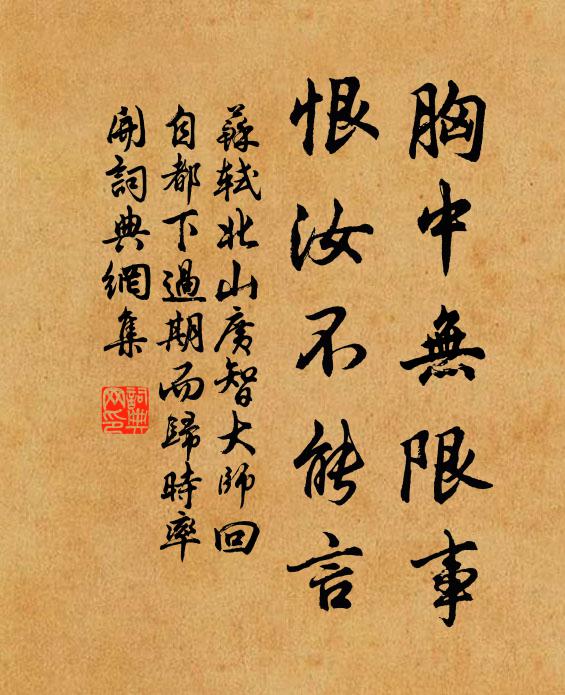 胸中無限事
恨汝不能言
蘇軾北山廣智大師回
自都下過期而歸時率
開詞典網集
詞典
网印